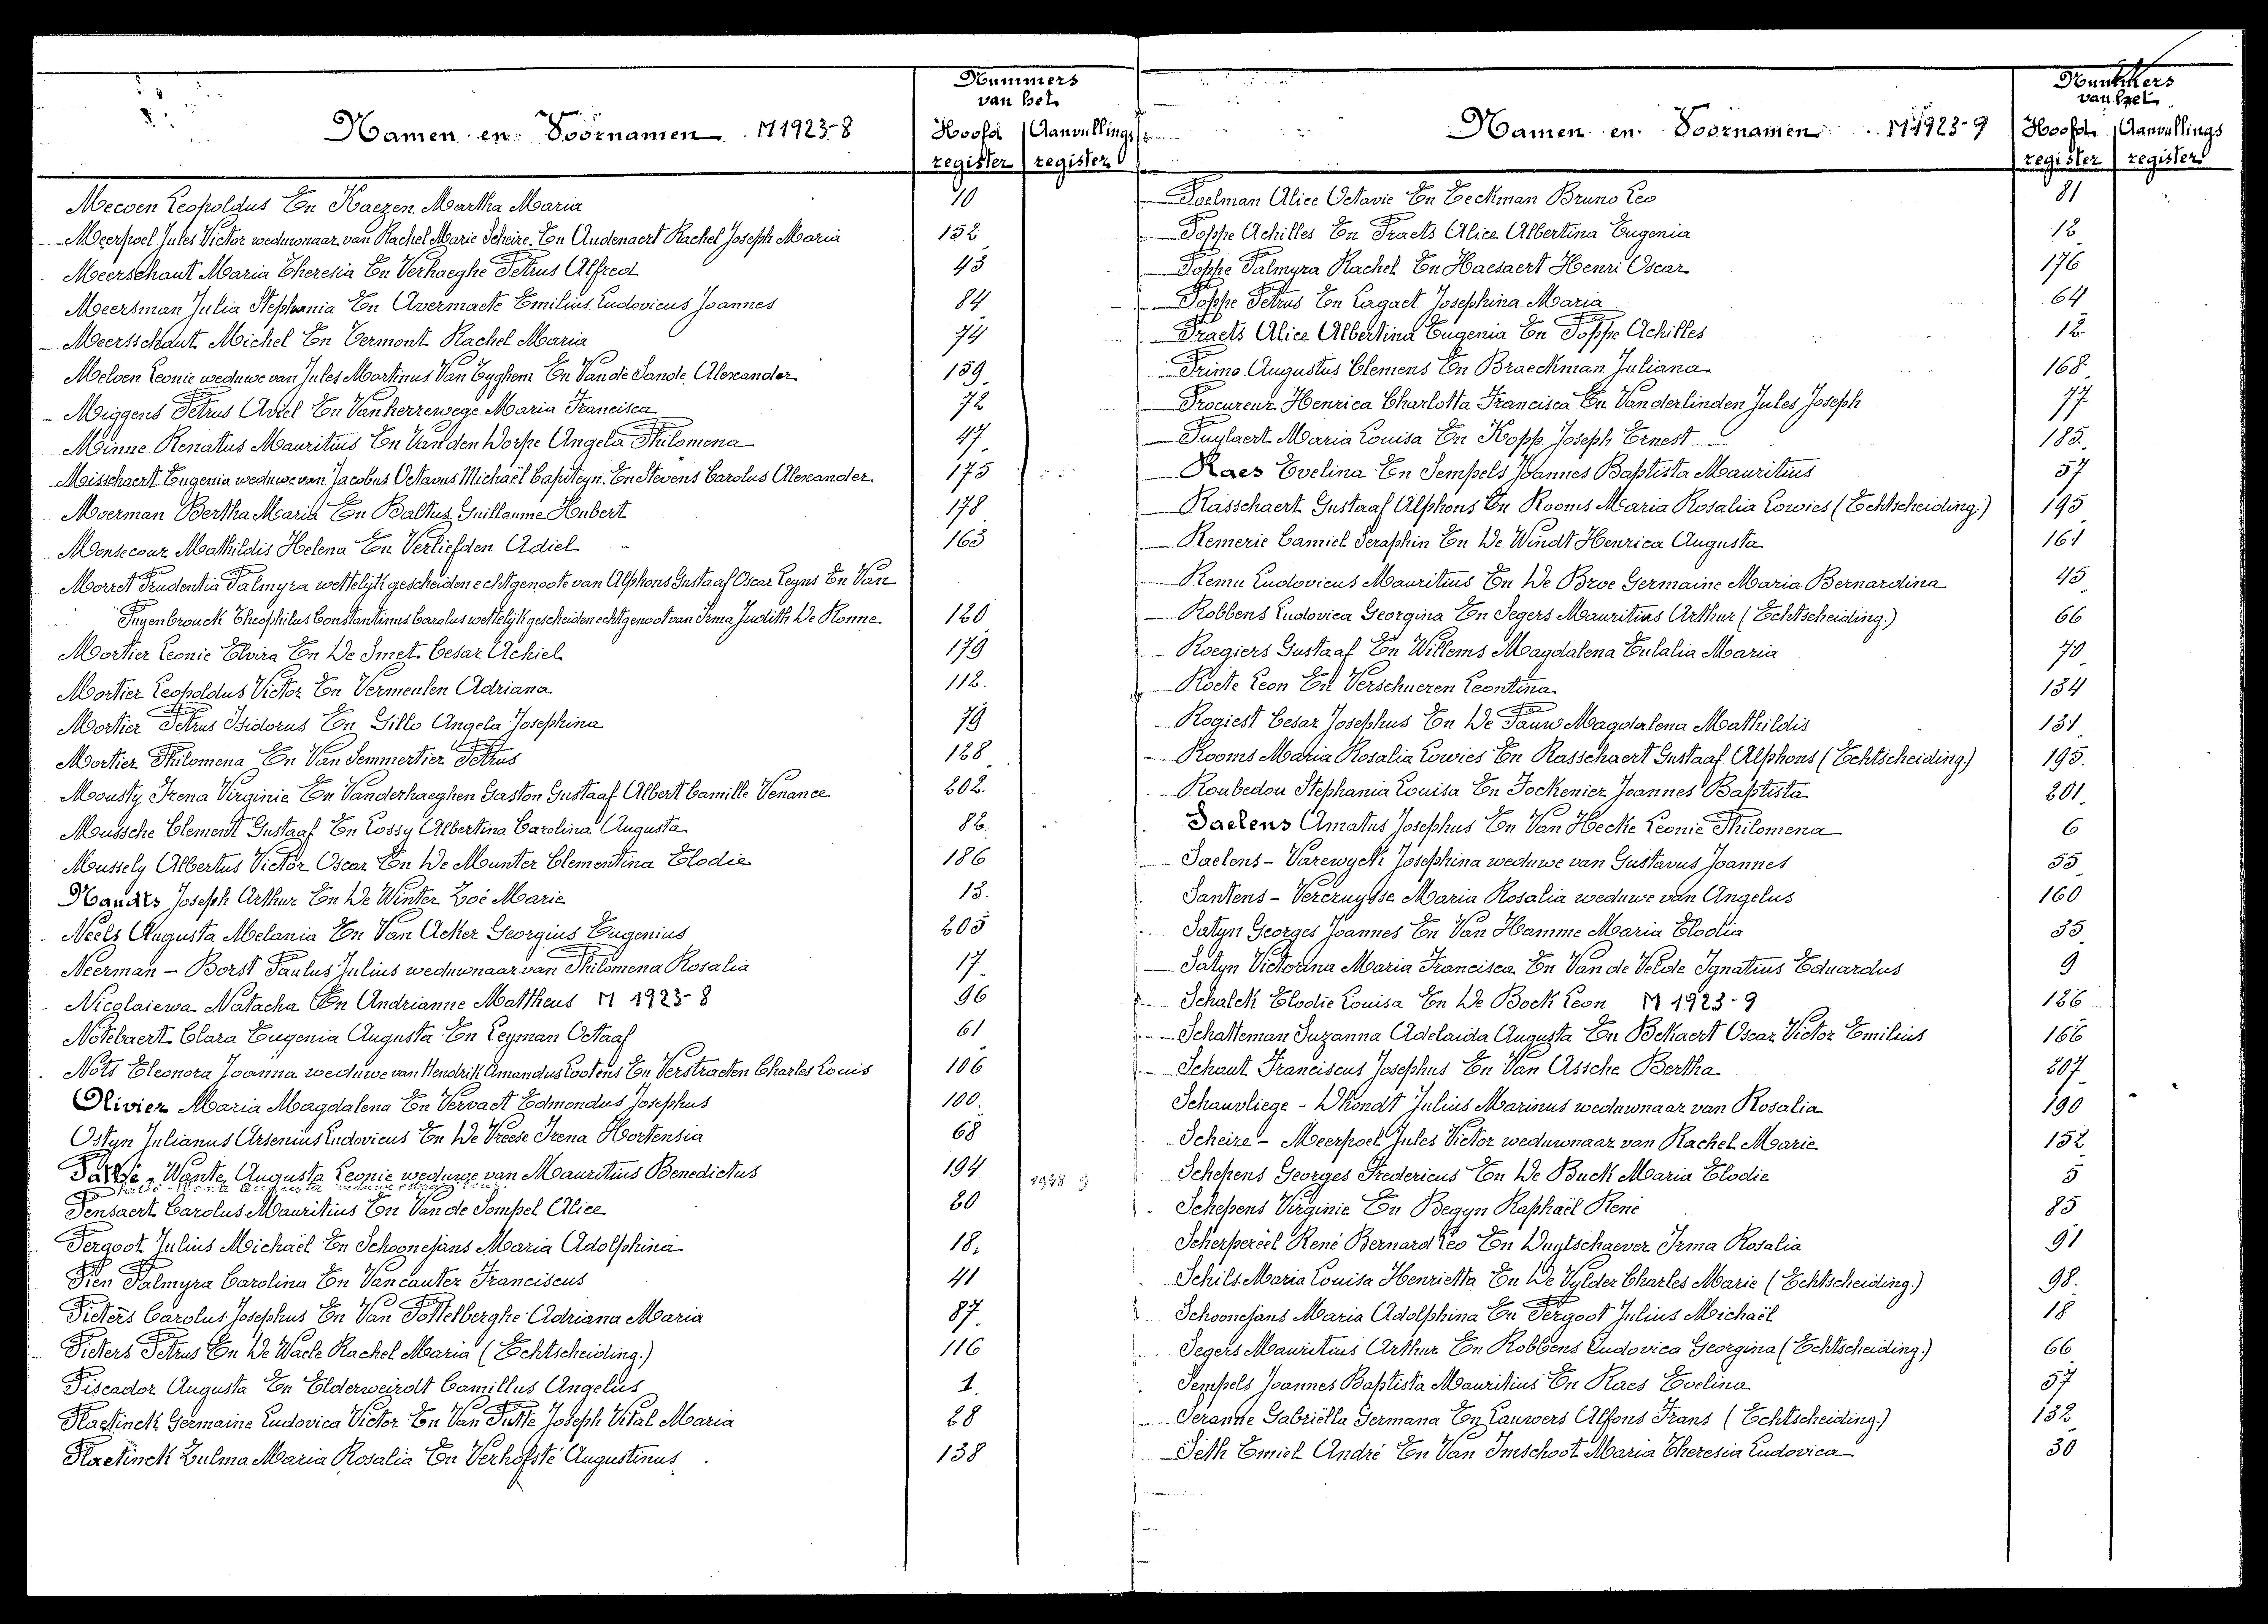 Namen en Voornamen M1923-8
Nummers
van het
Hoofd register
Aanvullings register
Mecoen Leopoldus En Kaezen Martha Maria 10
Meerpoel Jules Victor weduwnaar van Rachel Marie Scheire En Audenaert Rachel Joseph Maria 152
Meerschaut Maria Theresia En Verhaeghe Petrus Alfred 43
Meersman Julia Stephania En Avermaete Emilius Ludovicus Joannes 84
Meersschaut Michel En Vermont Rachel Maria 74
Meloen Leonie weduwe van Jules Martinus Van Tyghem En Van de Sande Alexander 159
Miggens Petrus Aviel En Vanherrewege Maria Francisca 72
Minne Renatus Mauritius En Van den Dorpe Angela Philomena 47
Misschaert Eugenia weduwe van Jacobus Octavus Michaël Capiteyn En Stevens Carolus Alexander 175
Moerman Bertha Maria En Baltus Guillaume Hubert 178
Monsecour Mathildis Helena En Verliefden Adiel 163
Morret Prudentia Palmyra wettelijk gescheiden echtgenoote van Alphons Gustaaf Oscar Leyns En Van
Puyenbrouck Theophilus Constantinus Carolus wettelijk gescheiden echtgenoot van Irma Judith De Ronne 120
Mortier Leonie Elvira En De Smet Cesar Achiel 179
Mortier Leopoldus Victor En Vermeulen Adriana 112
Mortier Petrus Isidorus En Gillo Angela Josephina 79
Mortier Philomena En Van Semmertier Petrus 128
Mousty Irena Virginie En Vanderhaeghen Gaston Gustaaf Albert Camille Venance 202
Mussche Clement Gustaaf En Lossy Albertina Carolina Augusta 82
Mussely Albertus Victor Oscar En De Munter Clementina Elodie 186
Nandts Joseph Arthur En De Winter Zoé Marie 13
Neels Augusta Melania En Van Acker Georgius Eugenius 205
Neerman - Borst Paulus Julius weduwnaar van Philomena Rosalia 17
Nicolaiewa Natacha En Andrianne Mattheus M 1923-8 96
Notebaert Clara Eugenia Augusta En Leyman Octaaf 61
Nots Eleonora Joanna weduwe van Hendrik Amandus Lootens En Verstraeten Charles Louis 106
Olivier Maria Magdalena En Vervaet Edmondus Josephus 100
Ostyn Julianus Arsenius Ludovicus En De Vreese Irena Hortensia 68
Patté - Wante Augusta Leonie weduwe van Mauritius Benedictus 194
Pensaert Carolus Mauritius En Van de Sompel Alice 20
Pergoot Julius Michaël En Schoonejans Maria Adolphina 18
Pien Palmyra Carolina En Vancauter Franciscus 41
Pieters Carolus Josephus En Van Pottelberghe Adriana Maria 87
Pieters Petrus En De Waele Rachel Maria (Echtscheiding.) 116
Piscador Augusta En Elderweirdt Camillus Angelus 1
Plaetinck Germaine Ludovica Victor En Van Putte Joseph Vital Maria 28
Plaetinck Zulma Maria Rosalia En Verhofsté Augustinus 138
Namen en Voornamen M1923-9
Nummers
van het
Hoofd register
Aanvullings register
Poelman Alice Octavie En Eeckman Bruno Leo 81
Poppe Achilles En Praets Alice Albertina Eugenia 12
Poppe Palmyra Rachel En Haesaert Henri Oscar 176
Poppe Petrus En Lagaet Josephina Maria 64
Praets Alice Albertina Eugenia En Poppe Achilles 12
Primo Augustus Clemens En Braeckman Juliana 168
Procureur Henrica Charlotta Francisca En Vanderlinden Jules Joseph 77
Puylaert Maria Louisa En Kopp Joseph Ernest 185
Raes Evelina En Sempels Joannes Baptista Mauritius 57
Rasschaert Gustaaf Alphons En Rooms Maria Rosalia Lowies (Echtscheiding.) 195
Remerie Camiel Seraphin En De Windt Henrica Augusta 161
Remu Ludovicus Mauritius En De Broe Germaine Maria Bernardina 45
Robbens Ludovica Georgina En Segers Mauritius Arthur (Echtscheiding.) 66
Roegiers Gustaaf En Willems Magdalena Eulalia Maria 70
Roete Leon En Verschueren Leontina 134
Rogiest Cesar Josephus En De Pauw Magdalena Mathildis 131
Rooms Maria Rosalia Lowies En Rasschaert Gustaaf Alphons (Echtscheiding.) 195
Roubedou Stephania Louisa En Fockenier Joannes Baptista 201
Saelens Amatus Josephus En Van Hecke Leonie Philomena 6
Saelens - Varewyck Josephina weduwe van Gustavus Joannes 55
Santens - Vercruysse Maria Rosalia weduwe van Angelus 160
Satyn Georges Joannes En Van Hamme Maria Elodia 35
Satyn Victorina Maria Francisca En Van de Velde Ignatius Eduardus 9
Schalck Elodie Louisa En De Bock Leon M 1923-9 126
Schatteman Suzanna Adelaida Augusta En Bekaert Oscar Victor Emilius 166
Schaut Franciscus Josephus En Van Assche Bertha 207
Schauvliege - Dhondt Julius Marinus weduwnaar van Rosalia 190
Scheire - Meerpoel Jules Victor weduwnaar van Rachel Marie 152
Schepens Georges Fredericus En De Buck Maria Elodie 5
Schepens Virginie En Begyn Raphaël René 85
Scherpereel René Bernard Leo En Duytschaever Irma Rosalia 91
Schils Maria Louisa Henrietta En De Vylder Charles Marie (Echtscheiding.) 98
Schoonejans Maria Adolphina En Pergoot Julius Michaël 18
Segers Mauritius Arthur En Robbens Ludovica Georgina (Echtscheiding.) 66
Sempels Joannes Baptista Mauritius En Raes Evelina 57
Seranne Gabriëlla Germana En Lauwers Alfons Frans (Echtscheiding.) 132
Seth Emiel André En Van Imschoot Maria Theresia Ludovica 30